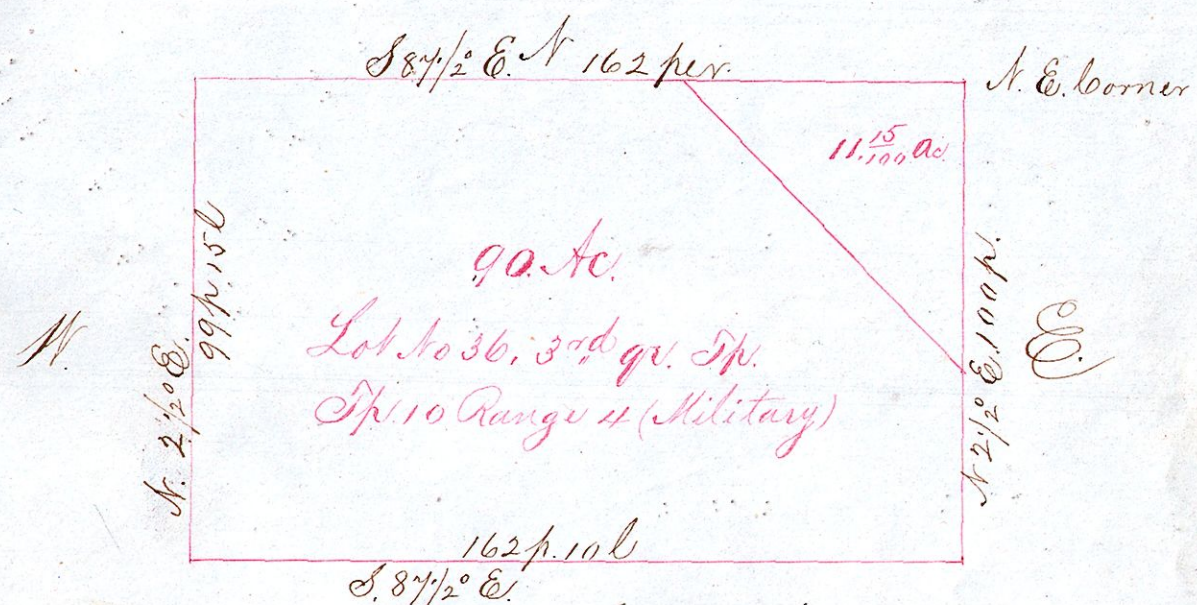 S 87 1/2° E. N 162 per.
N. E. Corner
11. 15/100 Ac
N. 2 1/2° E.
99 p. 15 l
W.
90. Ac.
Lot No 36, 3rd qr. Tp.
Tp. 10 Range 4 (Military)
N 2 1/2° E. 100 p.
E.
162 p. 10 l
S. 87 1/2° E.